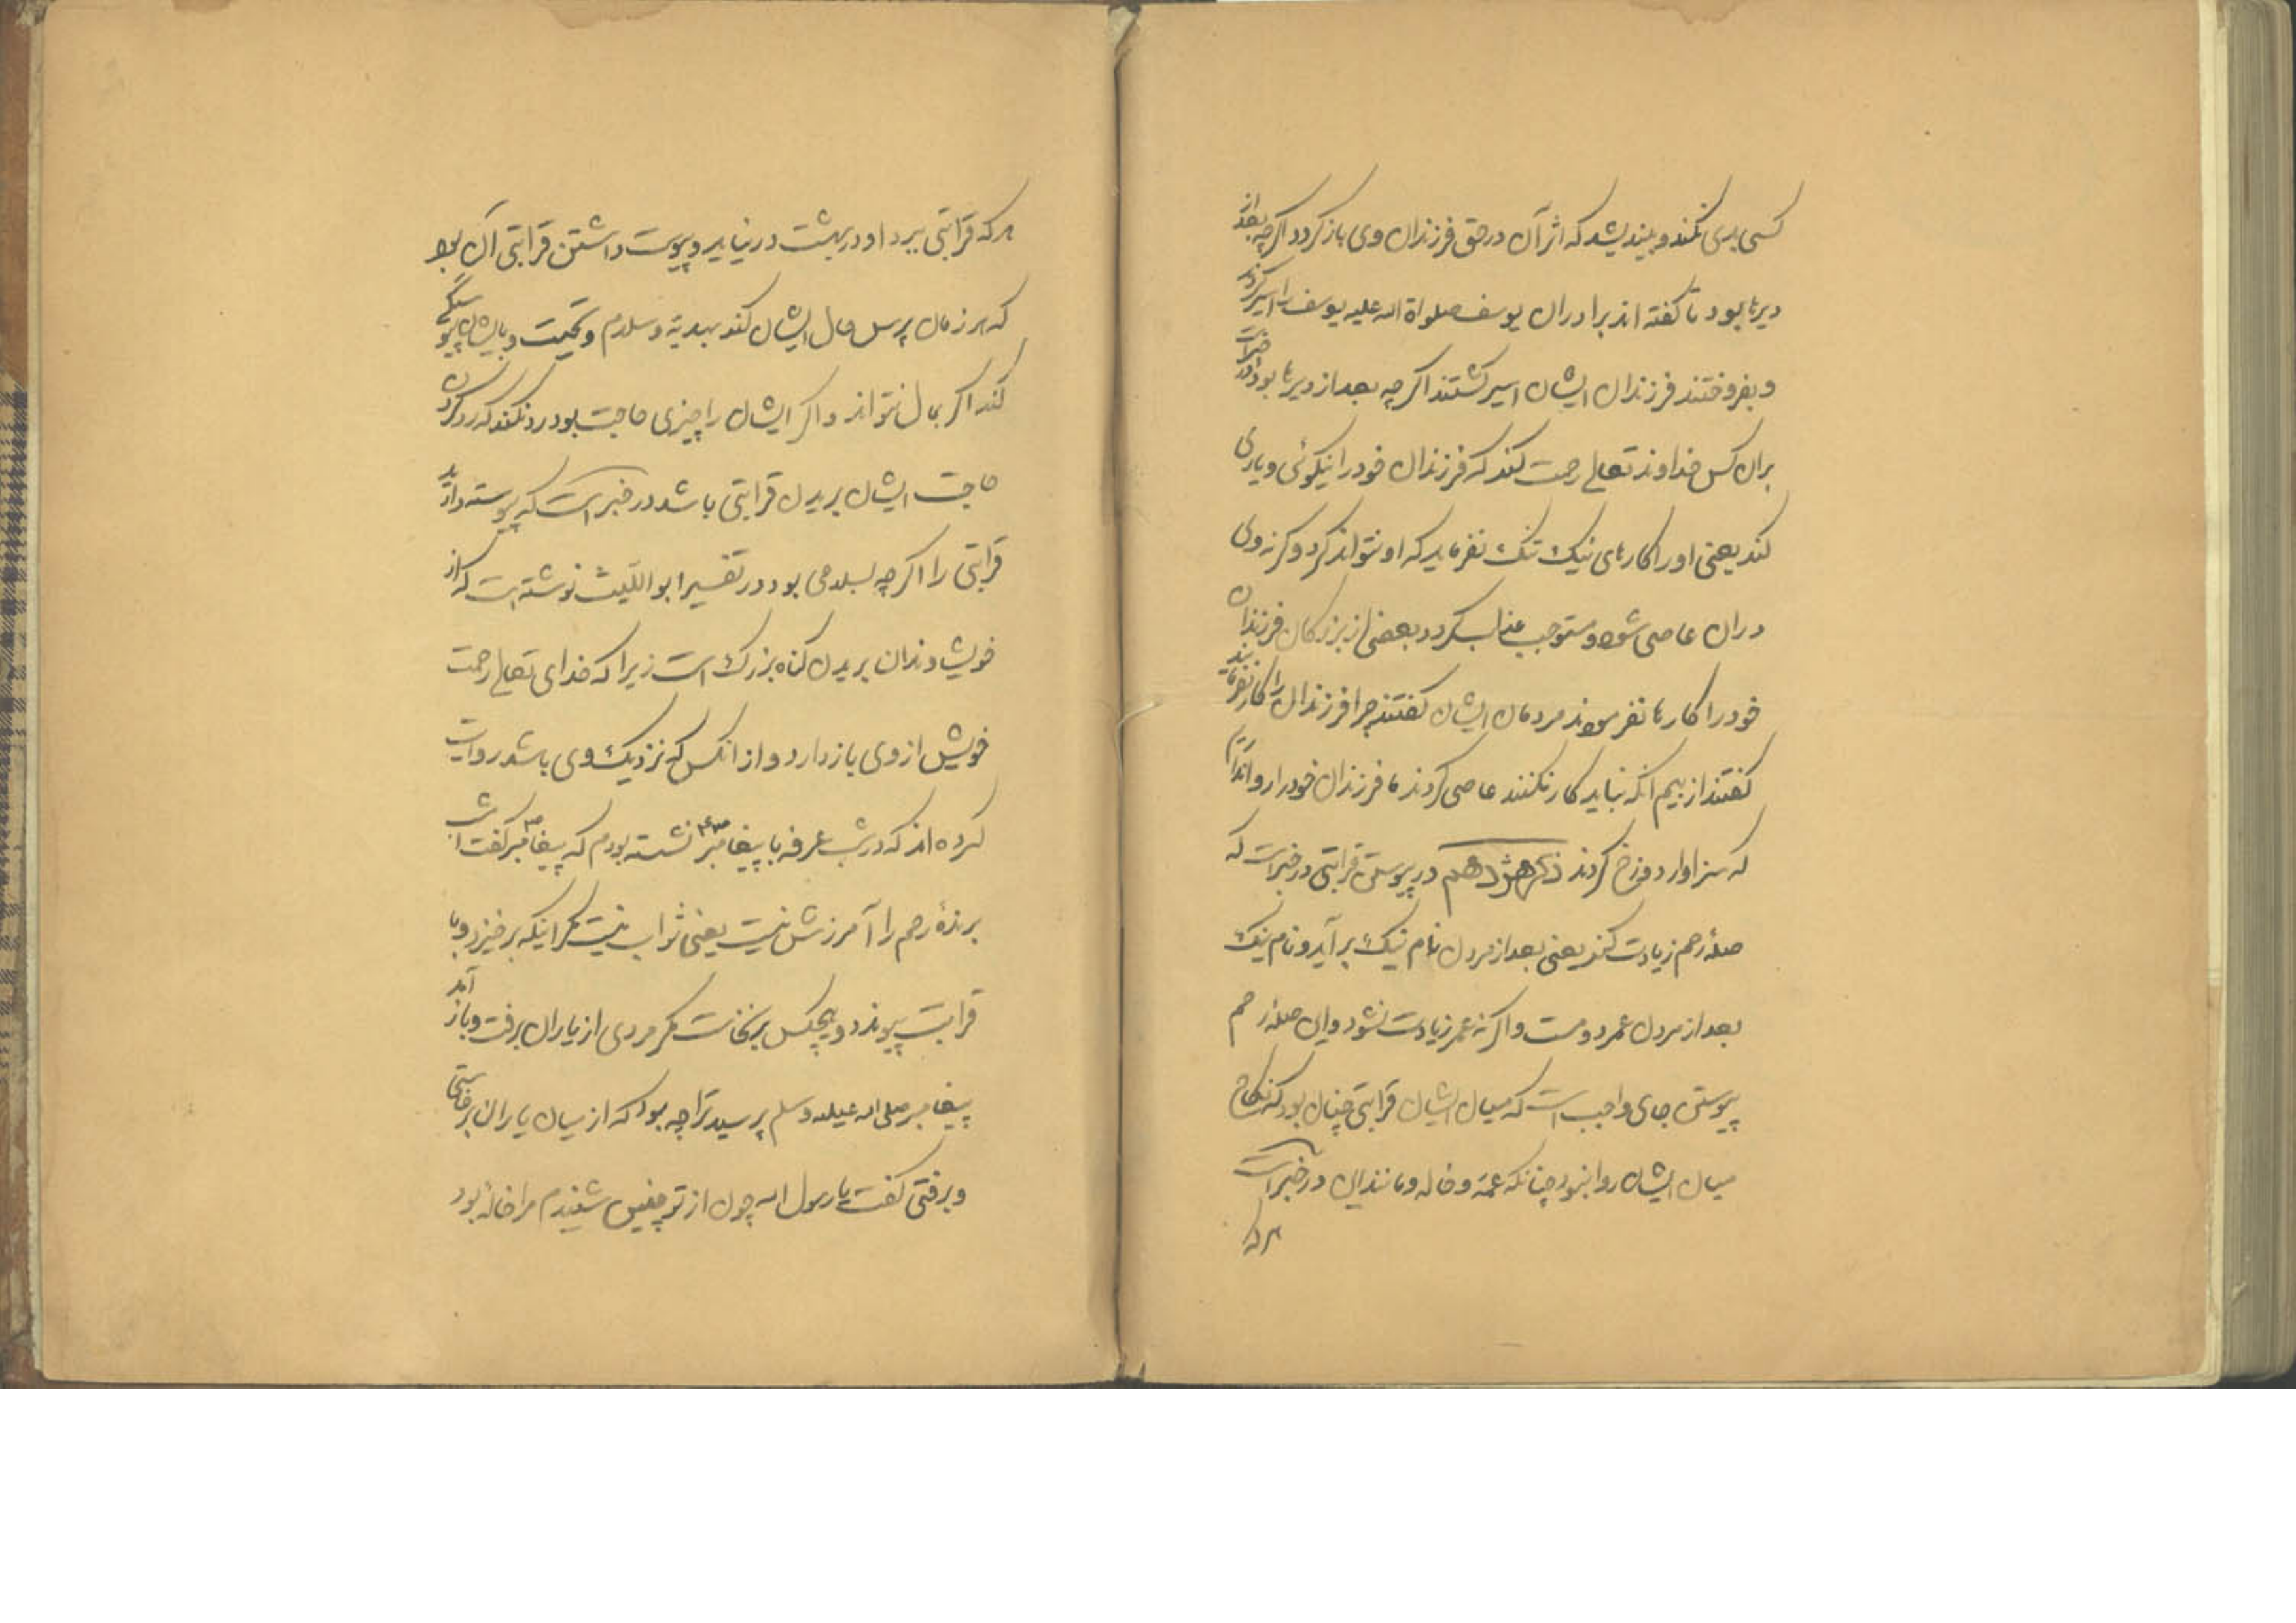 کسی بدی نکند و بیندیشد که اثر آن در حق فرزندان وی باز کردد اکرچه بعد از
دیرها بود تا کفته اند برادران یوسف صلواة الله علیه یوسف را اسیر کردند
و بفروختند فرزندان ایشان اسیر کشتند اکر چه بعد از دیرها بود و در خبرات
بران کس خداوند تعالی رحمت کند که فرزندان خود را نیکوئی و یاری
کند یعنی او را کارهای نیک تنک نفرماید که او نتواند کرد و کرنه وی
دران عاصی شود و مستوجب عذاب کردد بعضی از بزرکان فرزندان
خود را کارها نفرمودند مردمان ایشان کفتند چرا فرزندان را کار نفرمایند
کفتند از بیم انکه نباید کار نکنند عاصی کردند ما فرزندان خود را روا نداریم
که سزاوار دوزخ کردند ذکر هژدهم در پیوستن قرابتی در خبرست که
صلۀ رحم زیادت کند یعنی بعد از مردن نام نیک برآید و نام نیک
بعد از مردن عمر دومست و اکرنه عمر زیادت نشود و این صلۀ رحم
پیوستن جای واجب است که میان ایشان قرابتی چنان بود که نکاح
میان ایشان روا نبود چنانکه عمه و خاله و مانند این در خبرست
هر که
هر که قرابتی ببرد او در بهشت در نیاید و پیوست داشتن قرابتی آن بود
که هر زمان پرسش حال ایشان کند بهدیه و سلام و تحیت و بایشان پیوستگی
کند اکر بمال نتواند و اکر ایشان را چیزی حاجت بود رد نکند که رد کردن
حاجت ایشان بریدن قرابتی باشد در خبر است که پیوسته دارید
قرابتی را اکر چه بسلامی بود در تفسیر ابواللیث نوشته است که از
خویشاوندان بریدن کناه بزرک است زیرا که خدای تعالی رحمت
خویش از وی باز دارد و از انکس که نزدیک وی باشد روایت
کرده اند که در شب عرفه با پیغامبر نشسته بودم که پیغامبر کفت
برندۀ رحم را آمرزش نیست یعنی ثواب نیست مکر اینکه برخیزد و با
قرابت پیوندد و هیچکس برنخاست مکر مردی از یاران برفت و باز آمد
پیغامبر صلی الله علیه و سلم پرسید ترا چه بود که از میان یاران برخاستی
و برفتی کفت یا رسول الله چون از تو چنین شنیدم مرا خالۀ بود